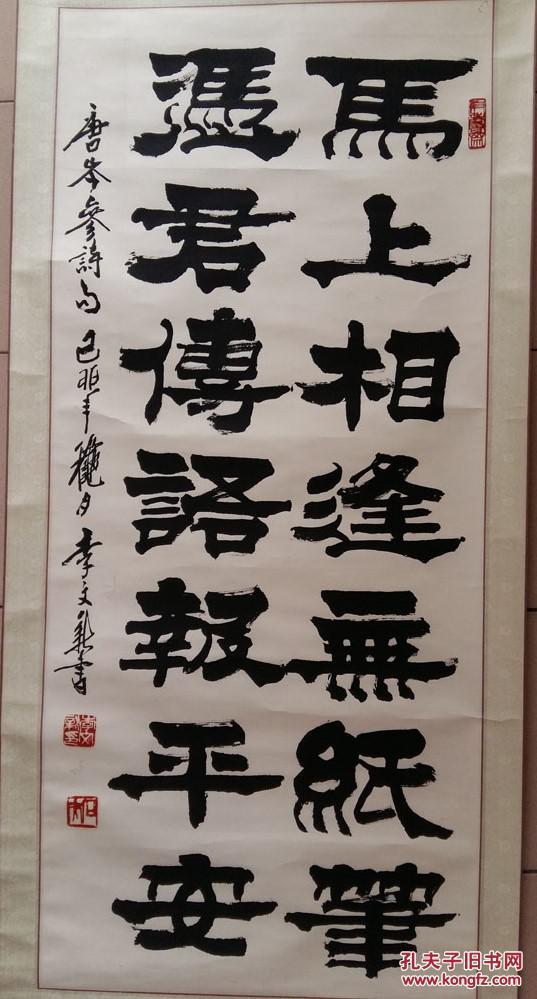 馬上相逢無紙筆
憑君傳語報平安
唐岑參詩句 己巳年穐月 李文書
孔夫子旧书网
www.kongfz.com